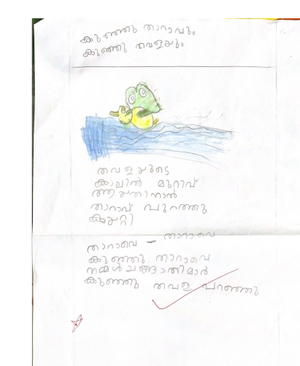 കുഞ്ഞു താറാവും
കുഞ്ഞു തവളയും
തവളയുടെ
കാലിൽ മുറിവ്
ആയതിനാൽ
താറാവ് പുറത്തു
കയറ്റി
താറാവെ — താറാവെ
കുഞ്ഞു താറാവെ
നമ്മൾ ചങ്ങാതിമാർ
കുഞ്ഞു തവള പറഞ്ഞു